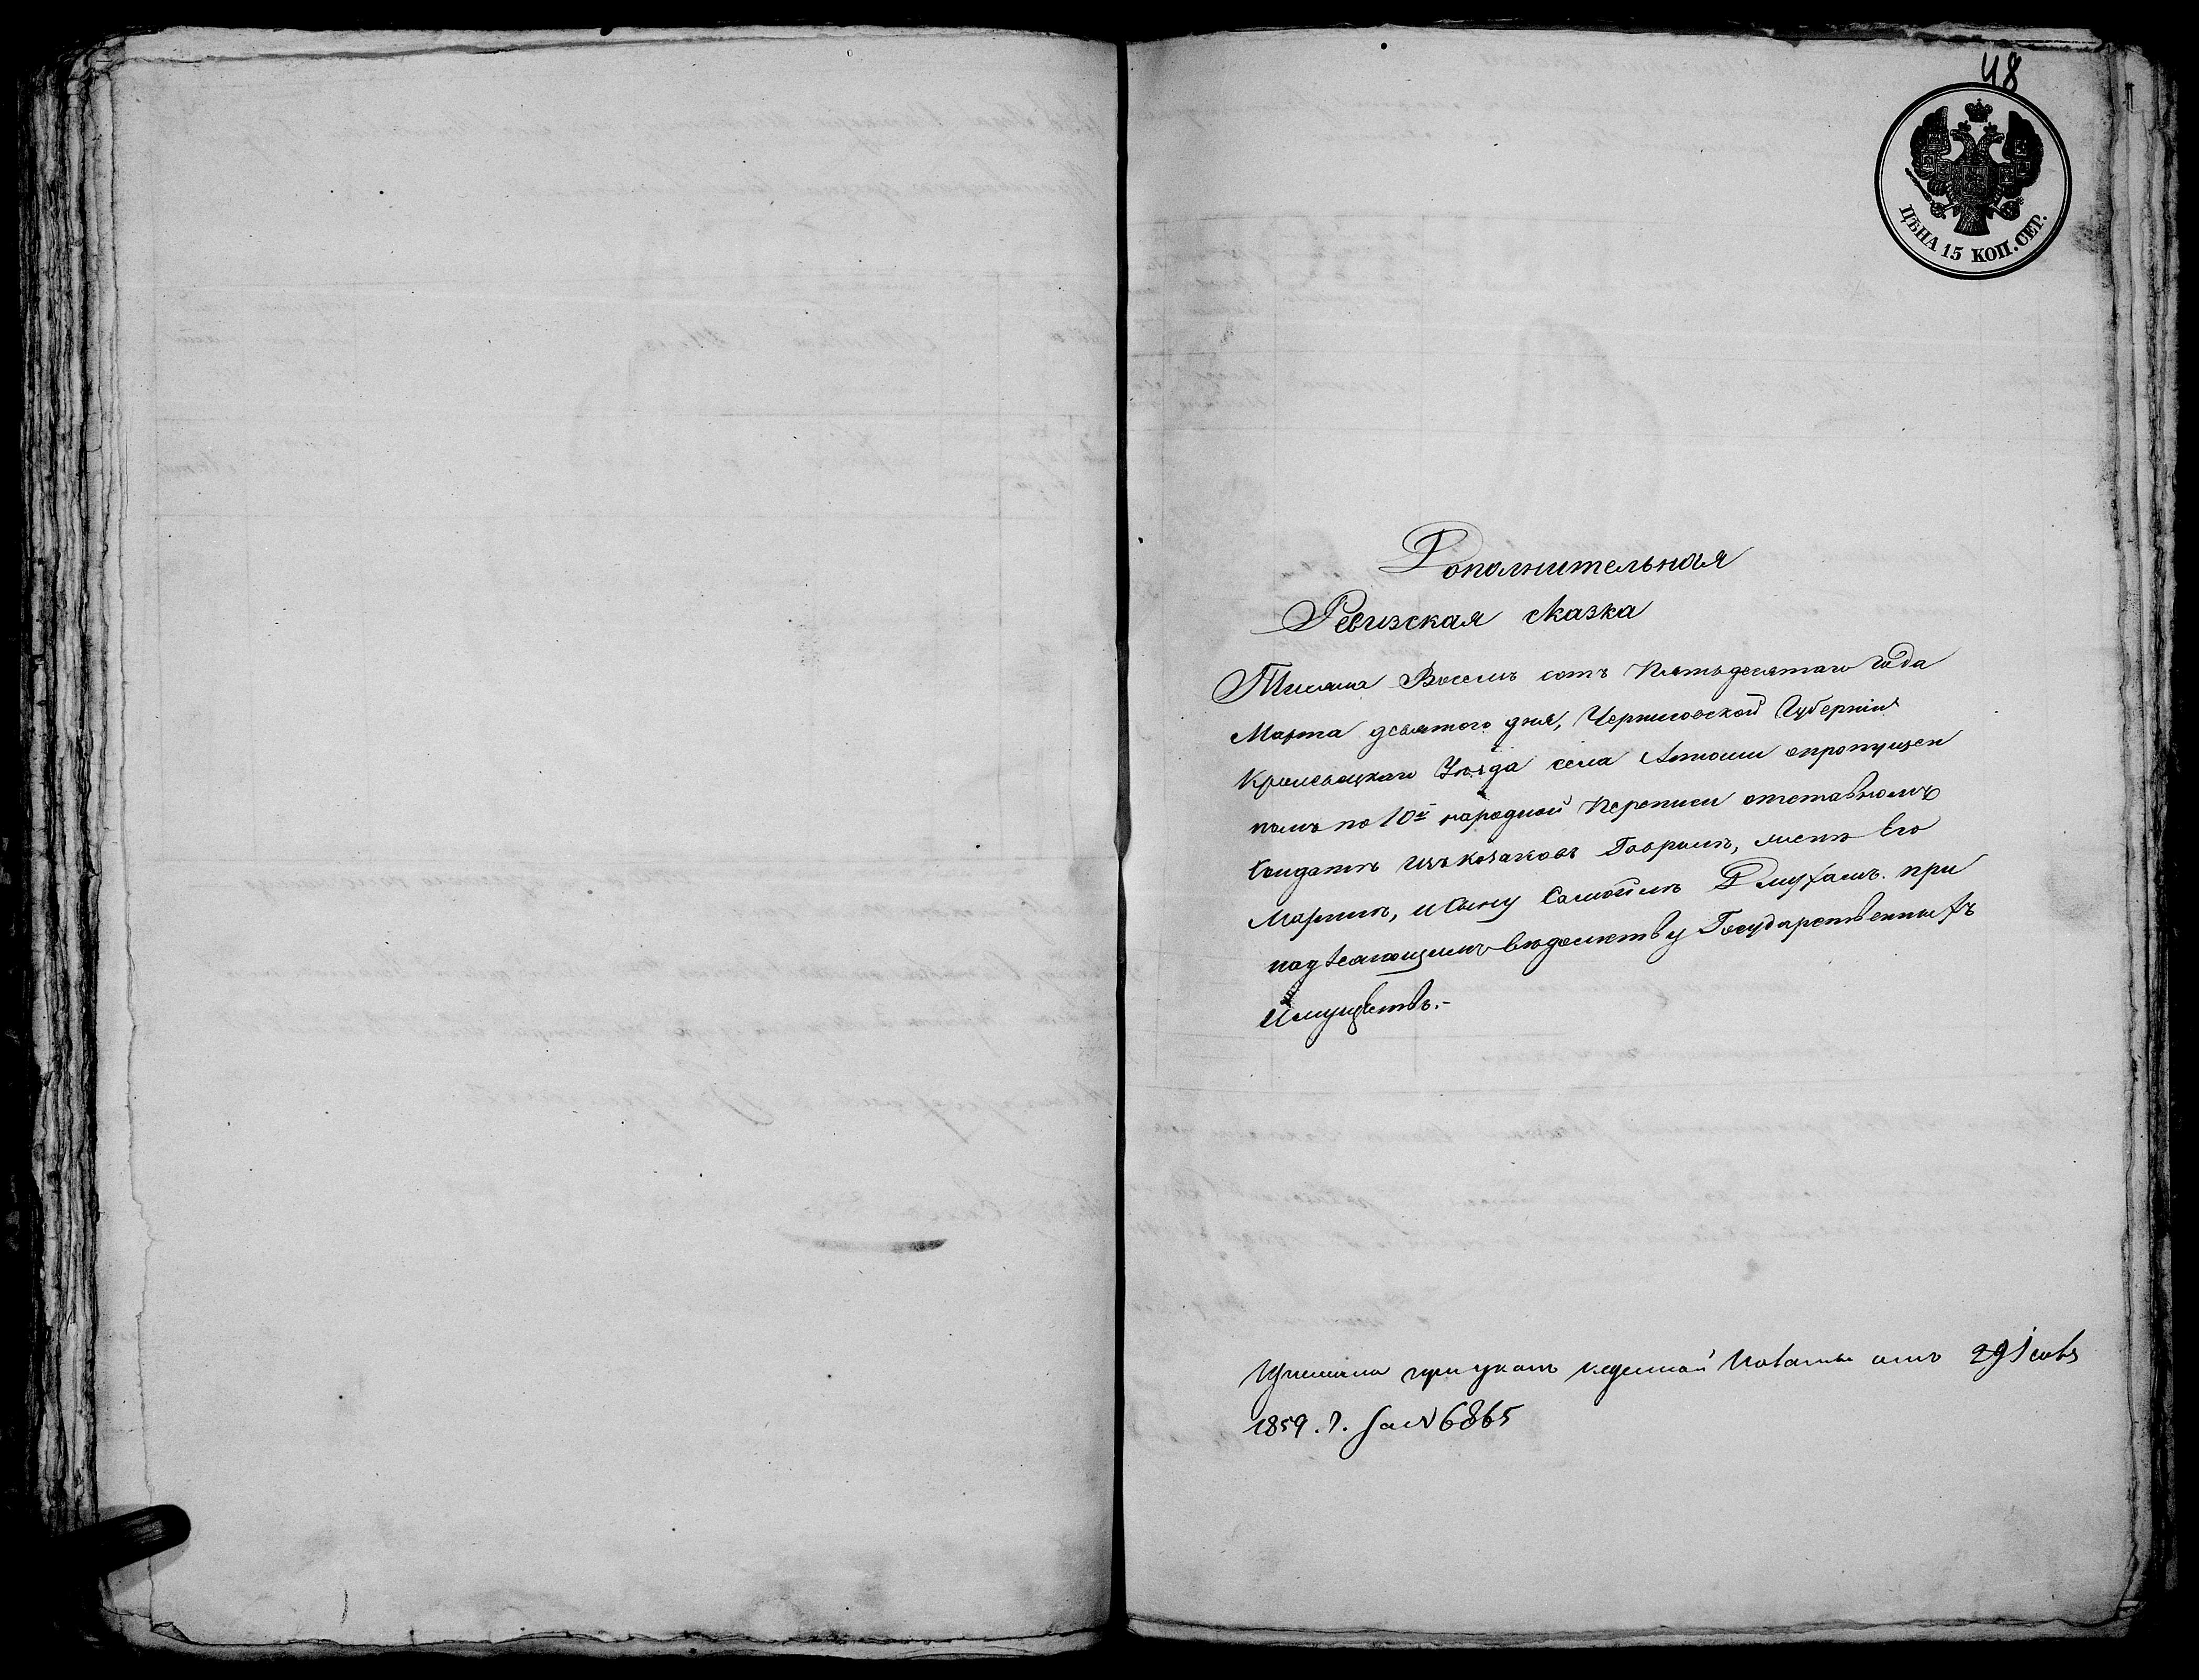 48
ЦѢНА 15 КОП. СЕР.
Дополнительная
Ревизская сказка
Тысяча Восемь сотъ Пятьдесятаго года
Марта девятого дня, Черниговской Губерніи
Кролевецкаго Уѣзда села Атюши опропущен
номъ по 10й народной Переписи отставномъ
Солдатѣ изъ козаковъ Гаврилѣ, женѣ Его
Марыѣ, и Сыну Самойлѣ при
надлежащимъ вѣдомству Государственныхъ
Имуществъ.-
при указѣ казенной Палаты отъ 29
1859. г. за N 6865